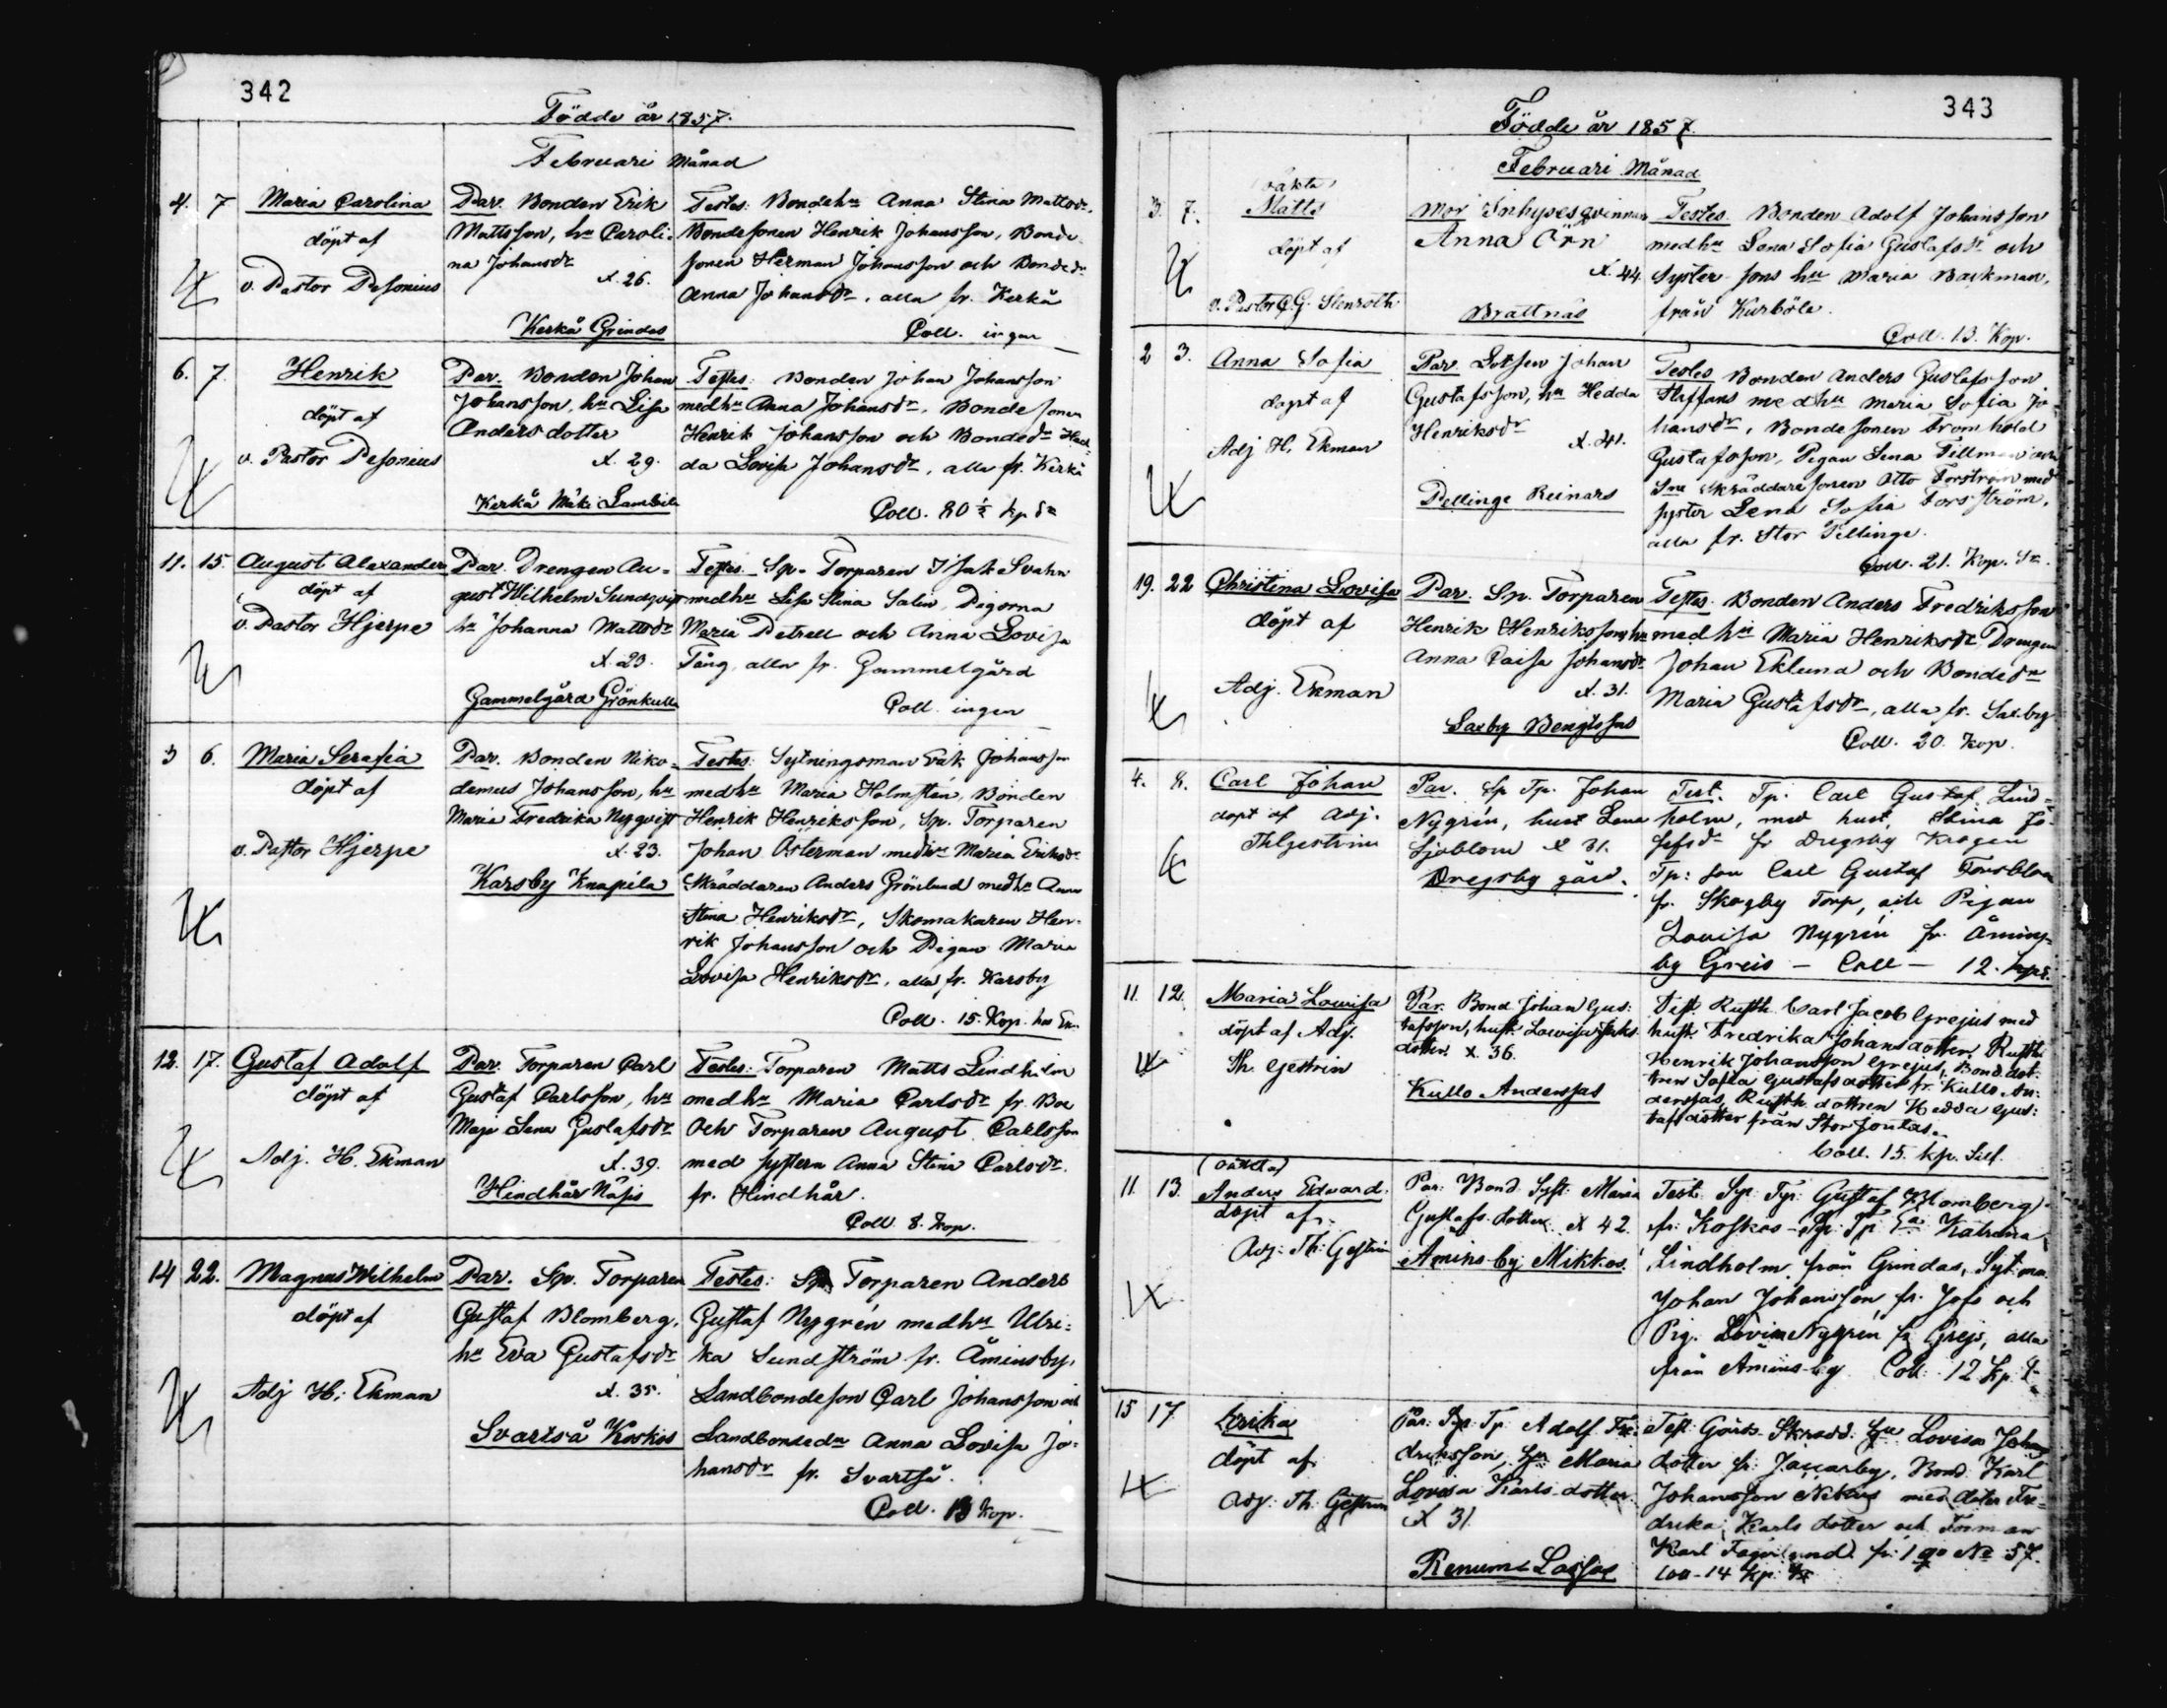 342
Födde år 1857.
Februari Månad
4. 7 Maria Carolina
döpt af
v. Pastor Pesonius
Par. Bonden Erik
Mattsson, hu Caroli-
na Johansdr
x. 26.
Kerkå Grindas
Testes: Bondehu Anna Stina Mattsdr,
Bondesonen Henrik Johansson, Bonde-
sonen Herman Johansson och Bondedr
Anna Johansdr, alla fr. Kerkå
Coll. ingen
6. 7. Henrik
döpt af
v. Pastor Pesonius
Par. Bonden Johan
Johansson, hu Lisa
Andersdotter
x. 29.
Kerkå Mäki
Testes: Bonden Johan Johansson
med hu Anna Johansdr, Bondesonen
Henrik Johansson och Bondedr Hed-
da Lovisa Johansdr, alla fr. Kerkå
Coll. 80 ½ kp Sr
11. 15. August Alexander
döpt af
v. Pastor Hjerpe
Par. Drengen Au-
gust Wilhelm Sundqvist
hu Johanna Mattsdr
x. 23.
Gammelgård Grönkulla
Testes. Sp. Torparen Isak Svahn
med hu Lisa Stina Salin, Pigorna
Maria Petrell och Anna Lovisa
Tång, alla fr. Gammelgård
Coll. ingen
3 6. Maria Serafia
döpt af
v. Pastor Hjerpe
Par. Bonden Niko-
demus Johansson, hu
Maria Fredrika Nyqvist
x. 23.
Karsby Knapila
Testes: Sytningsman Erik Johansson
med hu Maria Holmstén, Bonden
Henrik Henriksson, Sp. Torparen
Johan Österman med hu Maria Eriksdr
Skräddaren Anders Grönlund med hu Anna
Stina Henriksdr, Skomakaren Hen-
rik Johansson och Pigan Maria
Lovisa Henriksdr, alla fr. Karsby
Coll. 15. Kop.
12. 17. Gustaf Adolf
döpt af
Adj. H. Ekman
Par. Torparen Carl
Gustaf Carlsson, hu
Maja Lena Gustafsdr
x. 39.
Hindhår Näsis
Testes: Torparen Matts Lindholm
med hu Maria Carlsdr fr. Boe
och Torparen August Carlsson
med systern Anna Stina Carlsdr
fr. Hindhår.
Coll. 8. Kop.
14 22. Magnus Wilhelm
döpt af
Adj H. Ekman
Par. Sp. Torparen
Gustaf Blomberg,
hu Eva Gustafsdr
x. 35.
Svartså Koskos
Testes: Sp. Torparen Anders
Gustaf Nygrén med hu Ulri-
ka Sundström fr. Åminsby,
Landbondeson Carl Johansson och
Landbondedr Anna Lovisa Jo-
hansdr fr. Svartså.
Coll. 13 Kop.
343
Födde år 1857.
Februari Månad
3. 7. (oäkta)
Matts
döpt af
v. Pastor C. G. Stenroth
Mor Inhysesqvinnan
Anna Örn
x. 44.
Brattnäs
Testes. Bonden Adolf Johansson
med hu Lena Sofia Gustafsdr och
Syster-sons hu Maria Backman,
från Kurböle.
Coll. 13. Kop.
2 3. Anna Sofia
döpt af
Adj H. Ekman
Par. Lotsen Johan
Gustafsson, hu Hedda
Henriksdr
x. 41.
Pellinge Reinars
Testes Bonden Anders Gustafsson
Staffans med hu Maria Sofia Jo-
hansdr, Bondesonen Fromhold
Gustafsson, Pigan Lena Tillman och
Skräddaresonen Otto Forström med
syster Lena Sofia Forsström,
alla fr. Stor Pellinge.
Coll. 21. Kop. Sr.
19. 22 Christina Lovisa
döpt af
Adj. Ekman
Par. Sp. Torparen
Henrik Henriksson, hu
Anna Caisa Johansdr
x. 31.
Saxby Bengtsfas
Testes. Bonden Anders Fredriksson
med hu Maria Henriksdr, Drengen
Johan Eklund och Bondedr
Maria Gustafsdr, alla fr. Saxby
Coll. 20. Kop.
4. 8. Carl Johan
döpt af Adj.
Th. Gestrin
Par. Sp Tp. Johan
Nygrin, hust Lena
Sjöblom x 31.
Drägsby gård.
Test. Tp. Carl Gustaf Lind-
holm, med hust. Stina Jo-
sefsdr fr Drägsby Krogen
Tp: son Carl Gustaf Forsblom
fr. Skogby Torp, och Pigan
Lovisa Nygrin fr. Åmins-
by Greis - Coll - 12. kps.
11. 12. Maria Lowisa
döpt af Adj.
Th. Gestrin
Par. Bond Johan Gus:
tafsson, hust. Lowisa
dotter. x. 36.
Kullo Andersfas
Test. Rusth. Carl Jacob Grejus med
hustr. Fredrika Johansdotter, Rusth.
Henrik Johansson Grejus, Bond.dot-
tren Sofia Gustafsdotter fr. Kullo An-
dersfas, Rusth. dottren Hedda Gus:
tafsdotter från Stor Jontas.
Coll. 15. kp. Silf.
11. 13. (oäkta)
Anders Edvard.
döpt af
Adj: Th: Gestrin
Par: Bond. Syst: Maria
Gustafs dotter x 42.
Åmins-by Mikkos
Test: Sp: Tp: Gustaf Blomberg
fr: Koskos - Sp: Tp: Ea: Katrina
Lindholm från Grindas, Syt:ma
Johan Johansson fr. Jofs och
Pig. Lovisa Nygrén fr Grejs, alla
från Åmins-by Coll: 12 Kp. Sr
15 17 Erika
döpt af
Adj: Th: Gestrin
Par: Sp: Tp. Adolf Fre-
driksson, hu: Maria
Lovisa Karls-dotter
x 31.
Renum Lassas
Test: Gårds Skrädd. hu Lovisa Johans
dotter fr: Jackarby, Bond: Karl
Johansson med doter Fre-
drika Karls dotter och Forman
Karl Fagerlund fr: 1 qv No 57.
Coll - 14 Kp: Sr